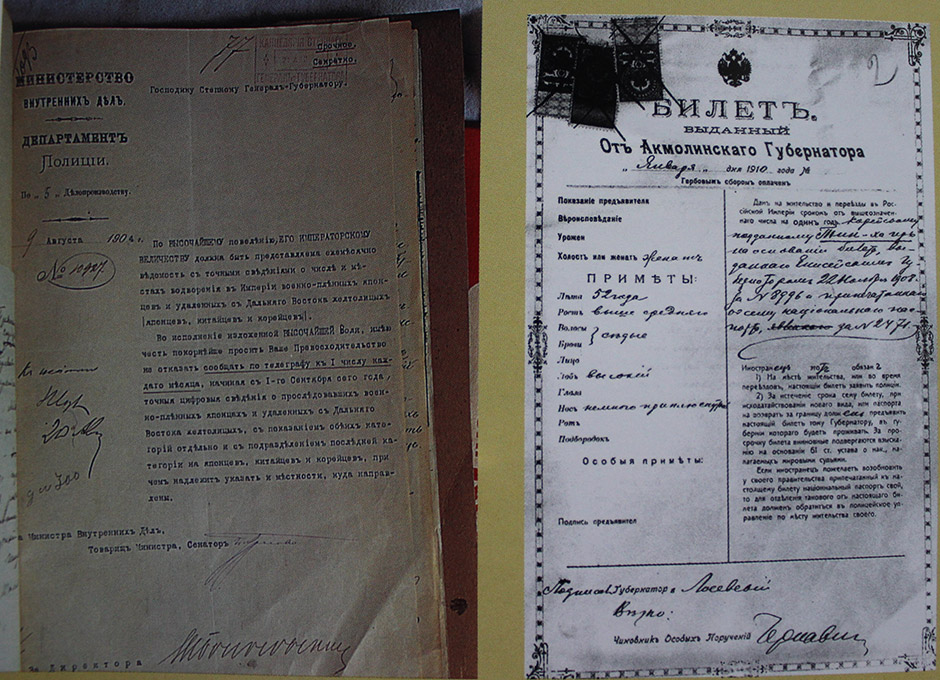 77
Срочное.
Секретно.
МИНИСТЕРСТВО
ВНУТРЕННИХЪ ДѢЛЪ.
ДЕПАРТАМЕНТЪ
Полиціи.
По „ 5 „ Дѣлопроизводству.
9 Августа 1904 г.
№ 10927
Господину Степному Генералъ-Губернатору.
По ВЫСОЧАЙШЕМУ повелѣнію, ЕГО ИМПЕРАТОРСКОМУ
ВЕЛИЧЕСТВУ должна быть представляема ежемѣсячно
вѣдомость съ точными свѣдѣніями о числѣ и мѣ-
стахъ водворенія въ Имперіи военно-плѣнныхъ япон-
цевъ и удаленныхъ съ Дальняго Востока желтолицыхъ
/японцевъ, китайцевъ и корейцевъ/.
Во исполненіе изложенной ВЫСОЧАЙШЕЙ Воли, имѣю
честь покорнѣйше просить Ваше Превосходительство
не отказать сообщать по телеграфу къ I числу каж-
даго мѣсяца, начиная съ I-го Сентября сего года,
точныя цифровыя свѣдѣнія о прослѣдовавшихъ воен-
но-плѣнныхъ японцахъ и удаленныхъ съ Дальняго
Востока желтолицыхъ, съ показаніемъ обѣихъ кате-
горій отдѣльно и съ подраздѣленіемъ послѣдней ка-
тегоріи на японцевъ, китайцевъ и корейцевъ, при
чемъ надлежитъ указать и мѣстности, куда направ-
лены.
Министра Внутреннихъ Дѣлъ,
Товарищъ Министра, Сенаторъ
За Директора
2
БИЛЕТЪ.
ВЫДАННЫЙ
Отъ Акмолинскаго Губернатора
„ Января „ дня 1910 года №
Гербовымъ сборомъ оплаченъ
Показаніе предъявителя
Вѣроисповѣданіе
Урожен
Холостъ или женатъ женатъ
ПРИМѢТЫ:
Лѣта 52 года
Ростъ выше средняго
Волосы
Брови } сѣдые
Лицо
Лобъ высокій
Глаза
Носъ немного приплюснутъ
Ротъ
Подбородокъ
Особыя примѣты:
Подпись предъявителя
Данъ на жительство и переѣзды въ Рос-
сійской Имперіи срокомъ отъ вышеозначен-
наго числа на одинъ годъ Корейскому
подданному
на основаніи билета, вы-
даннаго Енисейскимъ Гу-
бернаторомъ 22 Ноября 1908 г.
за № 8996 и припечатаннаго
ко сему національнаго пас-
порта, за № 2471.
Иностранецъ обязан
1) На мѣстѣ жительства, или во время
переѣздовъ, настоящій билетъ заявить полиціи.
2) За истеченіе срока сему билету, при
исходатайствованіи новаго вида, или паспорта
на возвратъ за границу долженъ предъявить
настоящій билетъ тому Губернатору, въ гу-
берніи котораго будетъ проживать. За про-
срочку билета виновные подвергаются взыска-
нію на основаніи 61 ст. устава о нак., на-
лагаемыхъ мировыми судьями.
Если иностранецъ пожелаетъ возобновить
у своего правительства припечатанный къ на-
стоящему билету національный паспортъ свой,
то для отдѣленія таковаго отъ настоящаго би-
лета долженъ обратиться въ полицейское уп-
равленіе по мѣсту жительства своего.
Подписалъ Губернаторъ Лосевскій
Вѣрно:
Чиновникъ Особыхъ Порученій